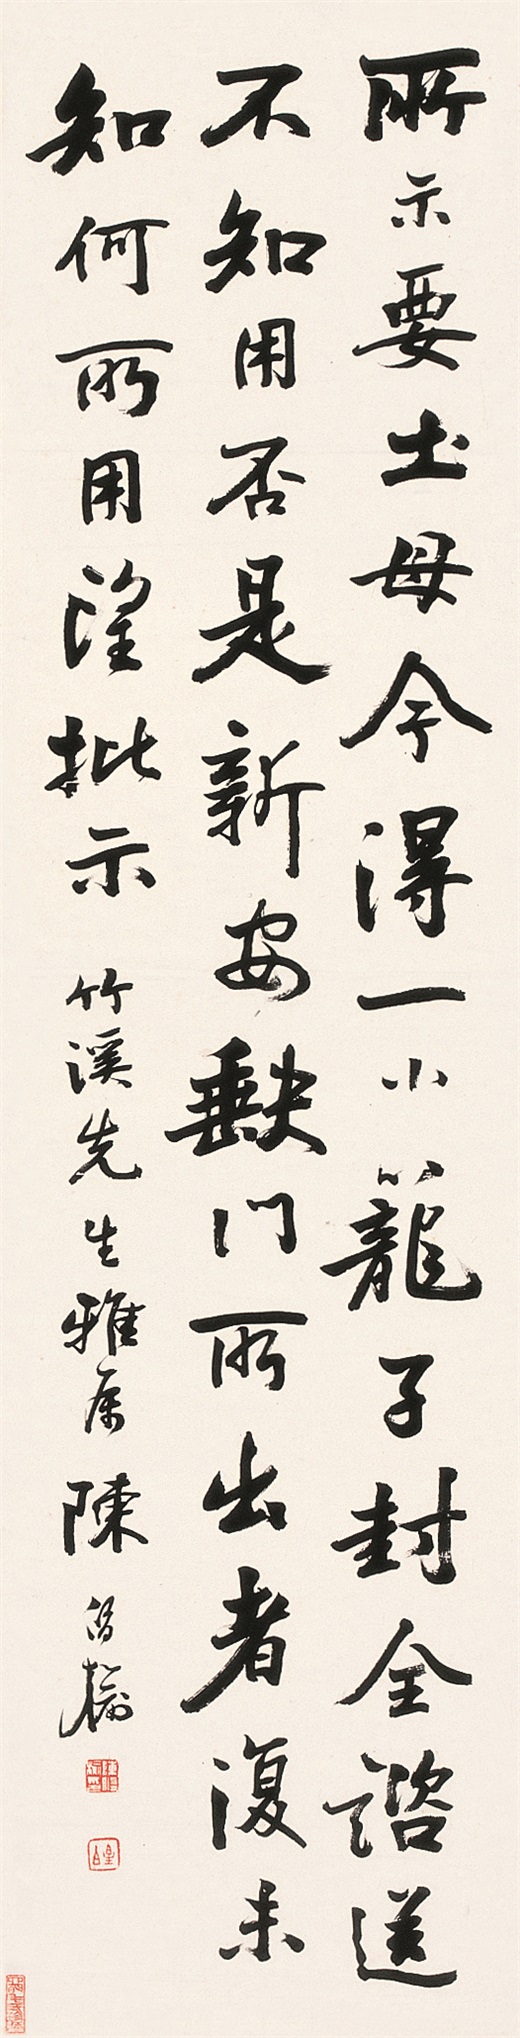 所示要土母今得一小籠子封全諮送
不知用否是新安缺門所出者復未
知何所用望批示 竹溪先生雅属 陳